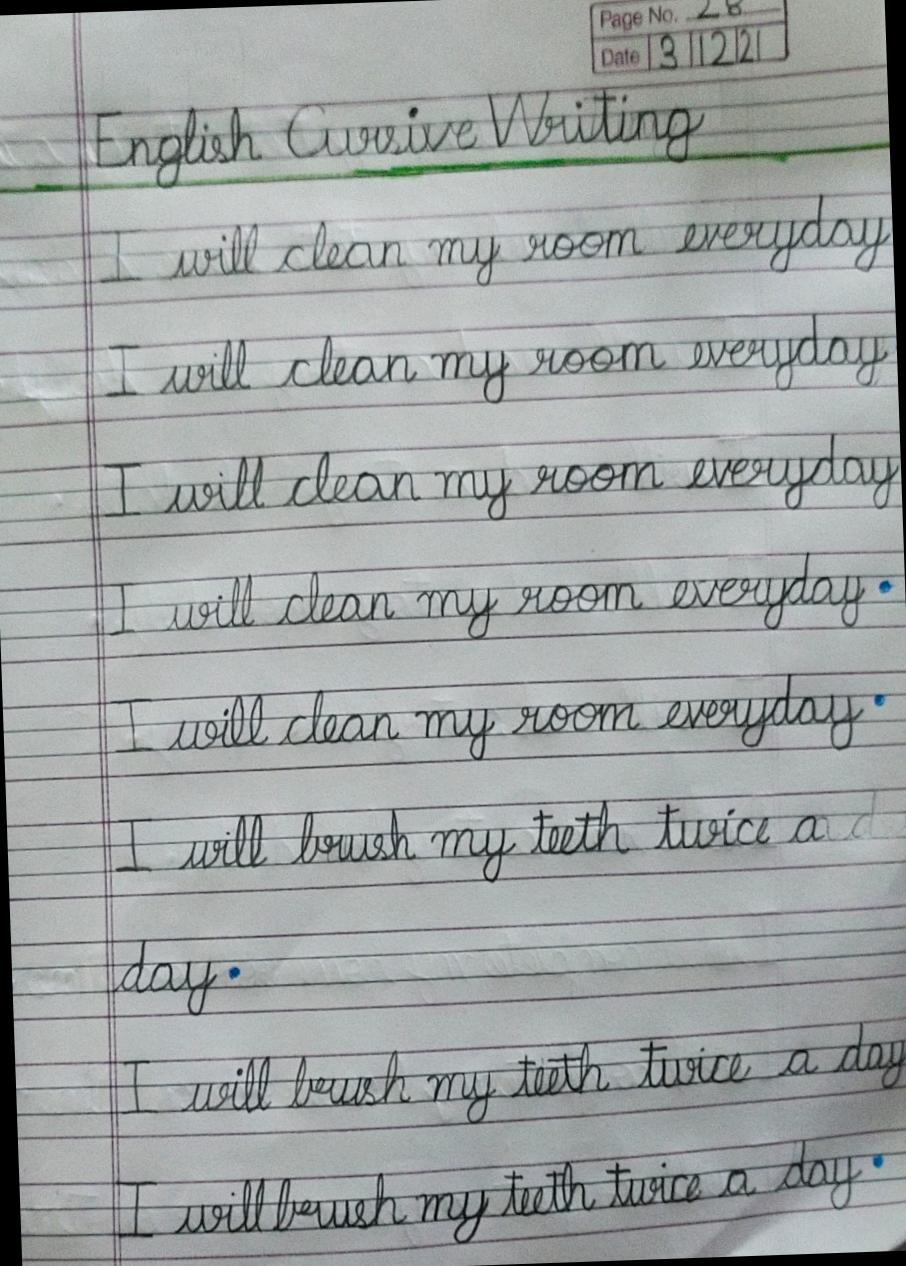 Page No. 28
Date 3/12/21
English Cursive Writing
I will clean my room everyday
I will clean my room everyday
I will clean my room everyday
I will clean my room everyday.
I will clean my room everyday.
I will brush my teeth twice a d
day.
I will brush my teeth twice a day
I will brush my teeth twice a day.